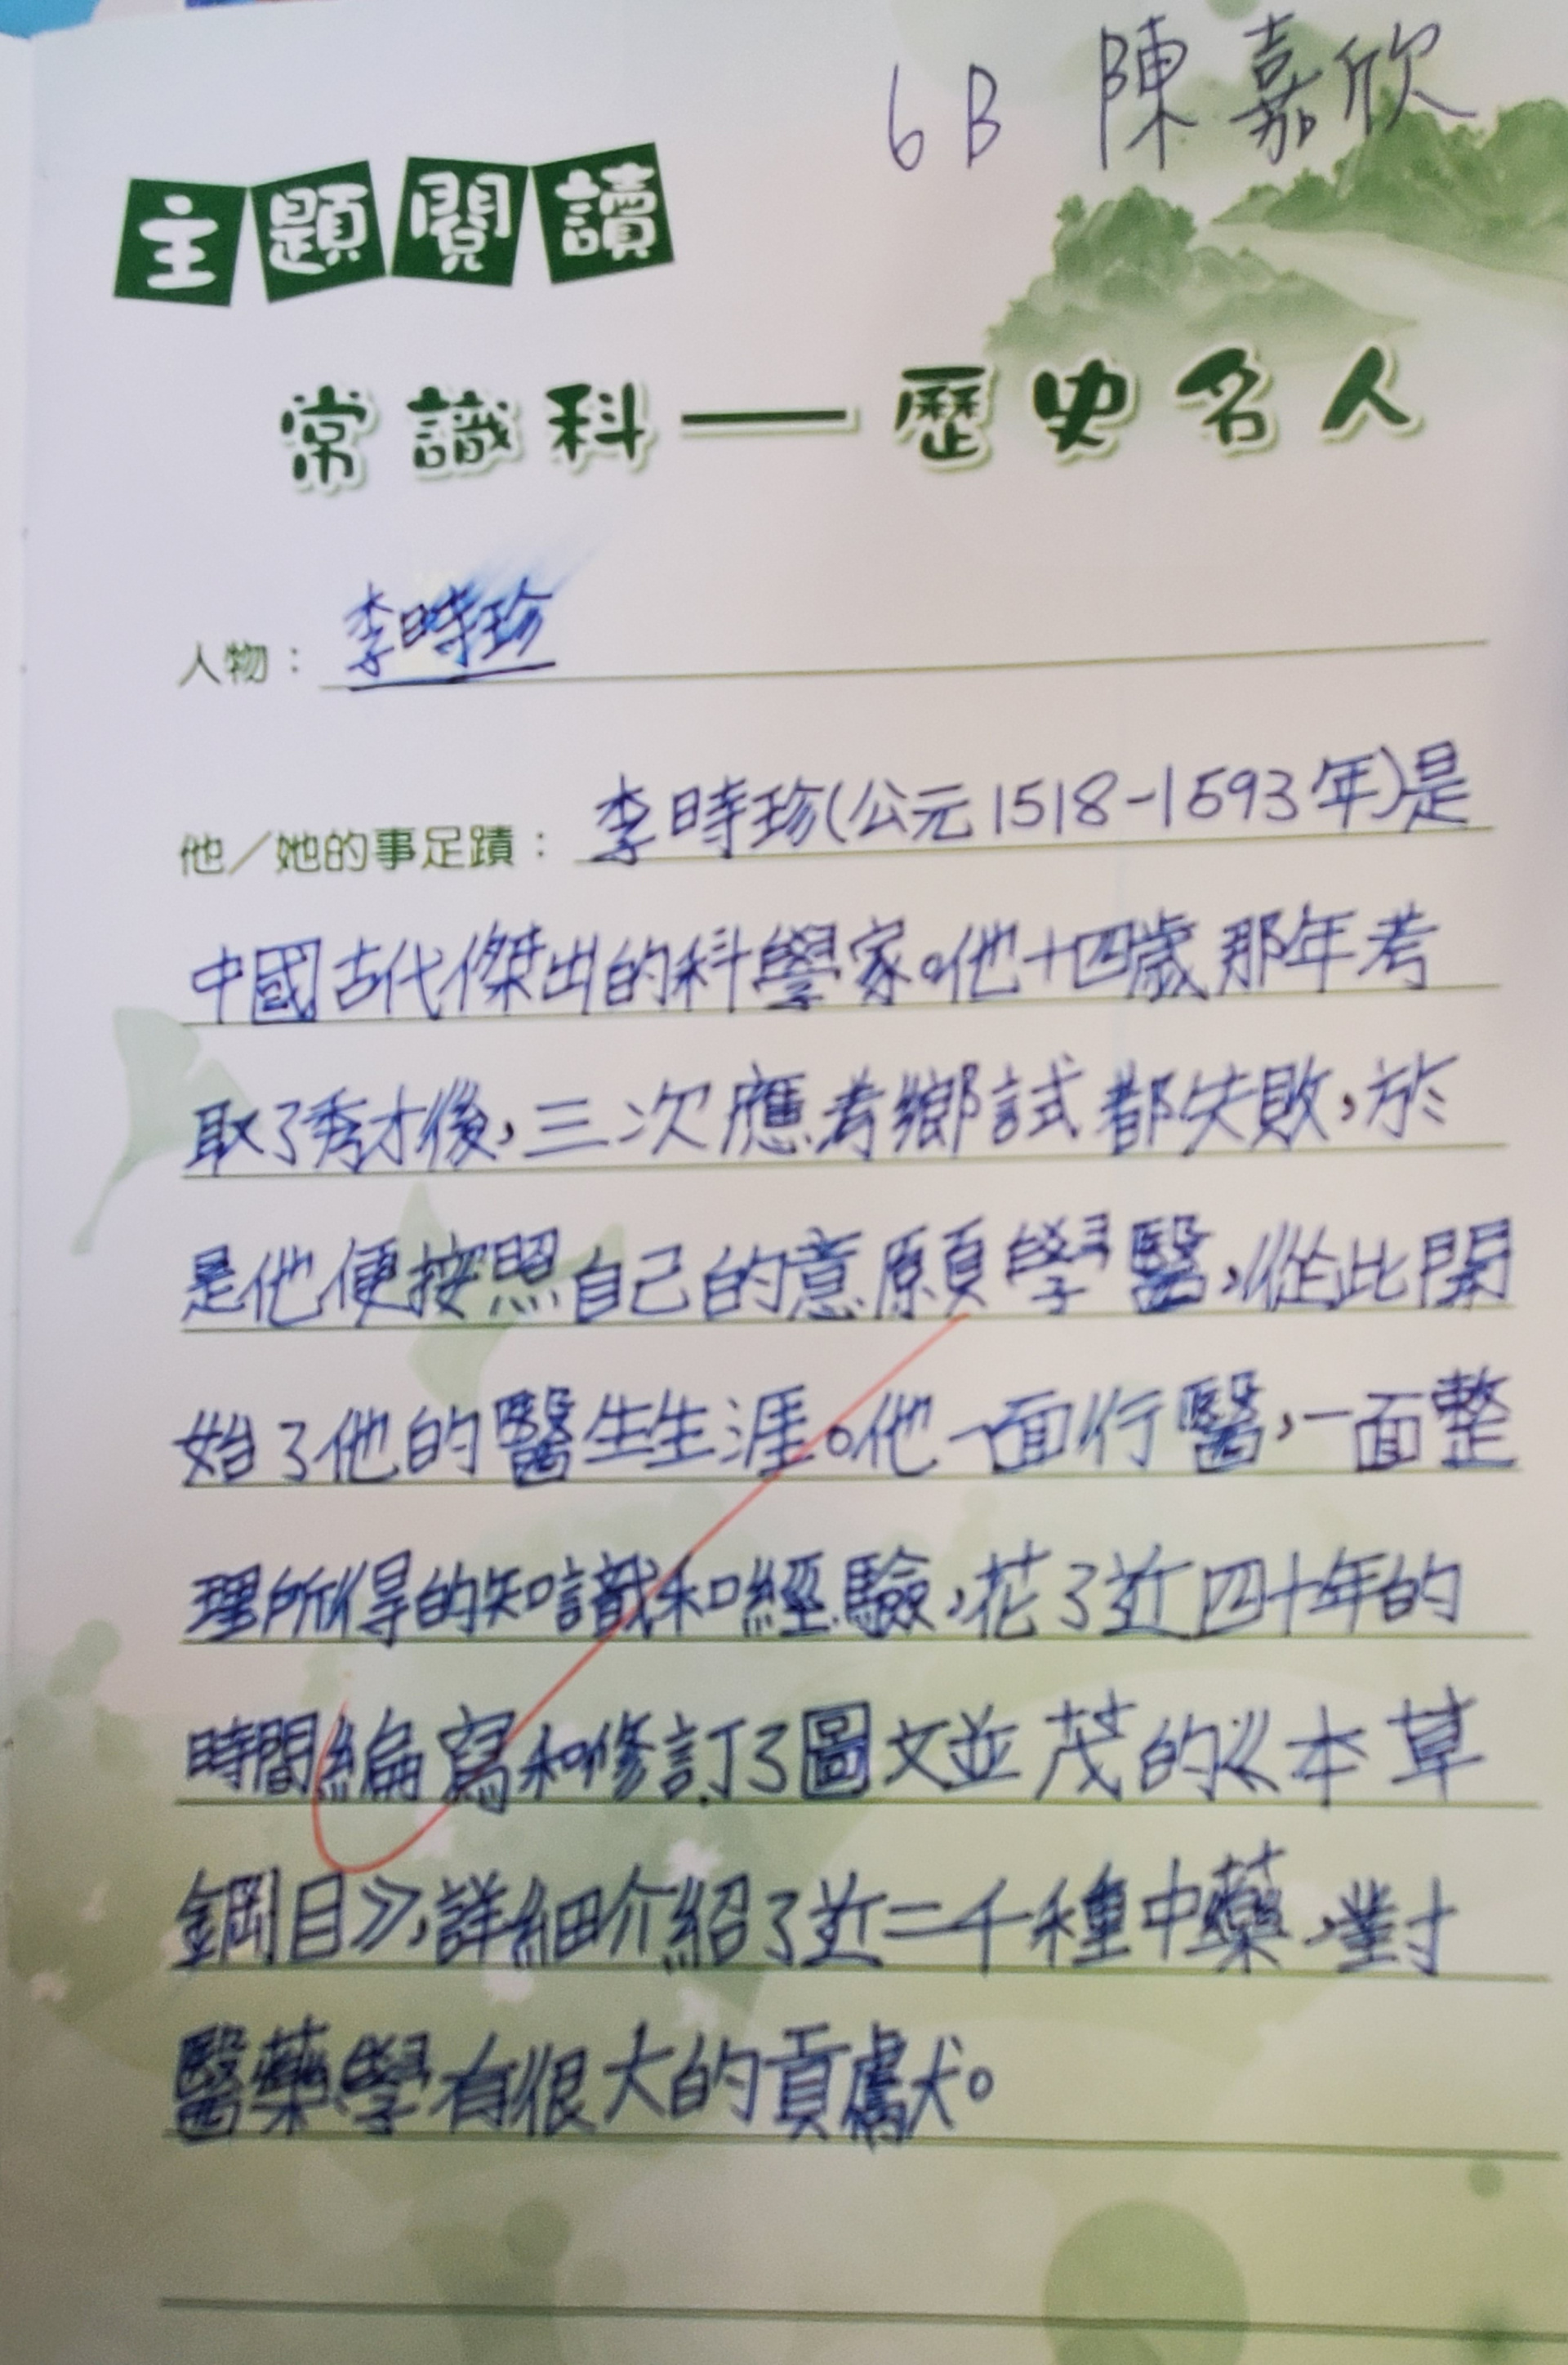 6B 陳嘉欣
主題閱讀
常識科——歷史名人
人物：李時珍
他／她的事足蹟：李時珍(公元1518-1593年)是
中國古代傑出的科學家。他十四歲那年考
取了秀才後，三次應考鄉試都失敗，於
是他便按照自己的意願學醫，從此開
始了他的醫生生涯。他一面行醫，一面整
理所得的知識和經驗，花了近四十年的
時間編寫和修訂了圖文並茂的《本草
鋼目》，詳細介紹了近二千種中藥，對
醫藥學有很大的貢獻。